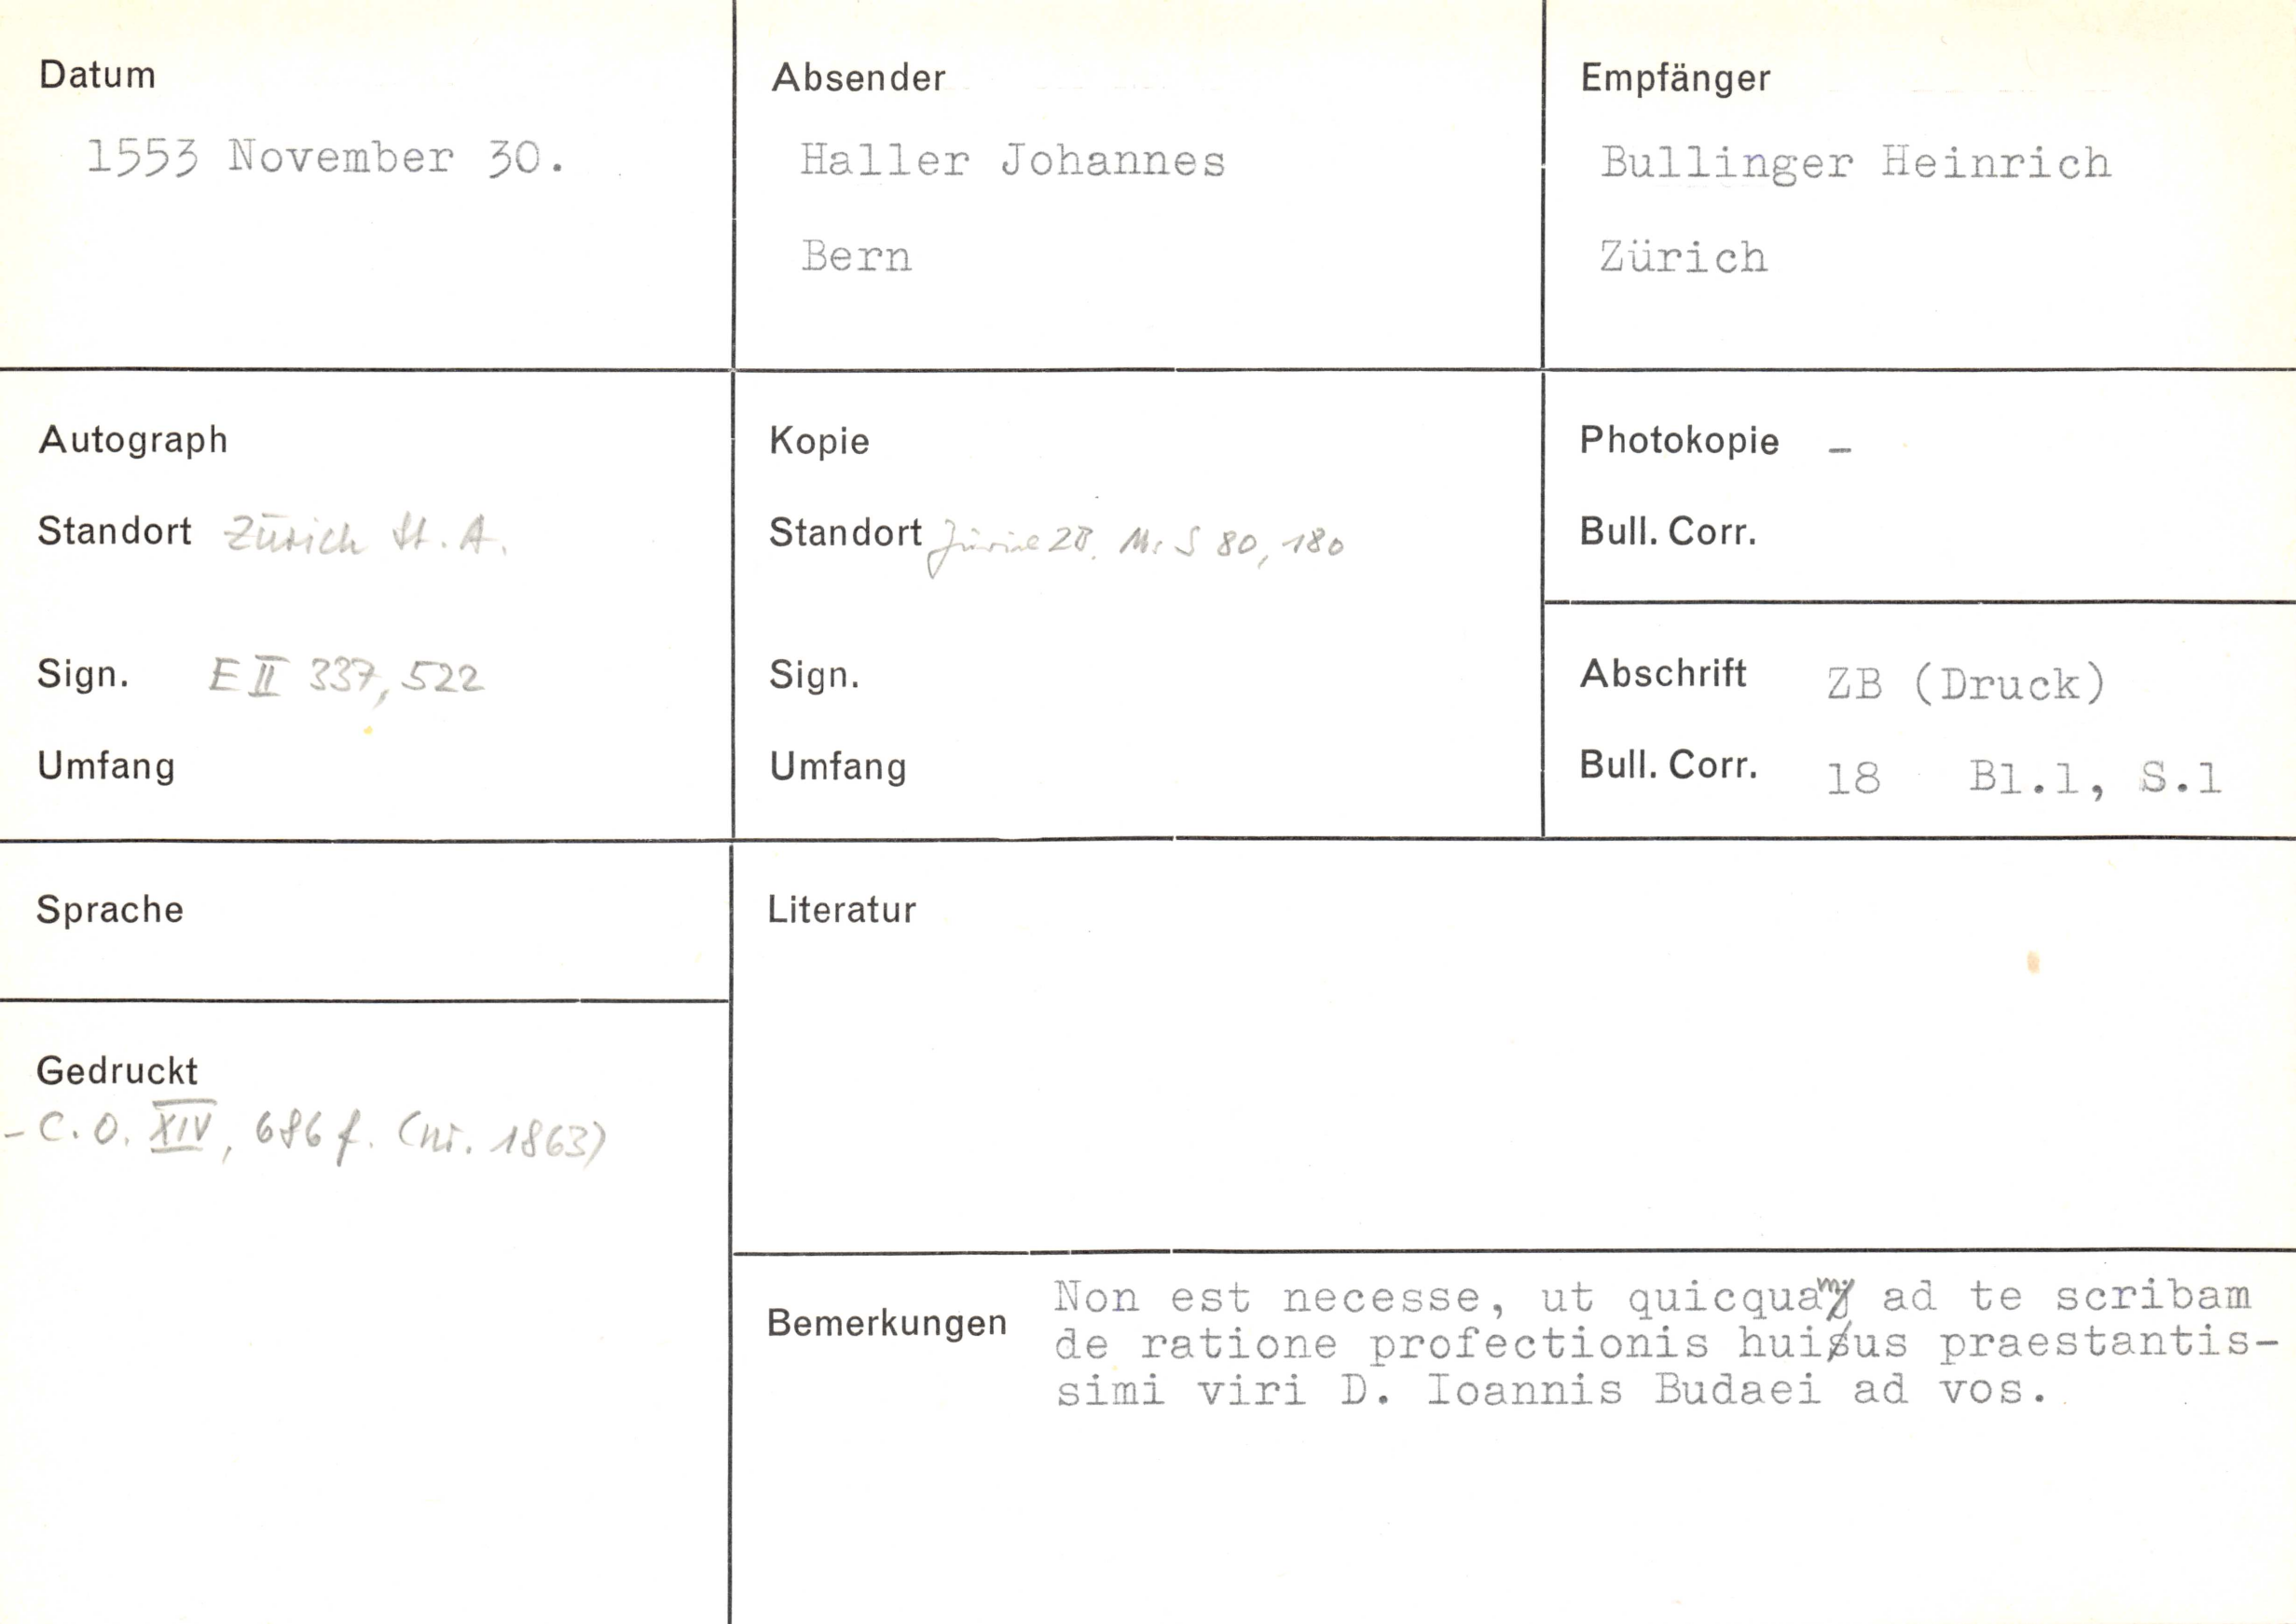 Datum
1553 November 30.
Absender
Haller Johannes
Bern
Empfänger
Bullinger Heinrich
Zürich
Autograph
Standort Zürich St. A.
Sign. E II 337, 522
Umfang
Kopie
Standort Zürich ZB. Ms S 80, 180
Sign.
Umfang
Photokopie -
Bull. Corr.
Abschrift ZB (Druck)
Bull. Corr. 18 Bl.1, S.1
Sprache
Gedruckt
- C. O. XIV, 686 f. (nr. 1863)
Literatur
Bemerkungen
Non est necesse, ut quicquam ad te scribam
de ratione profectionis huius praestantis-
simi viri D. Ioannis Budaei ad vos.